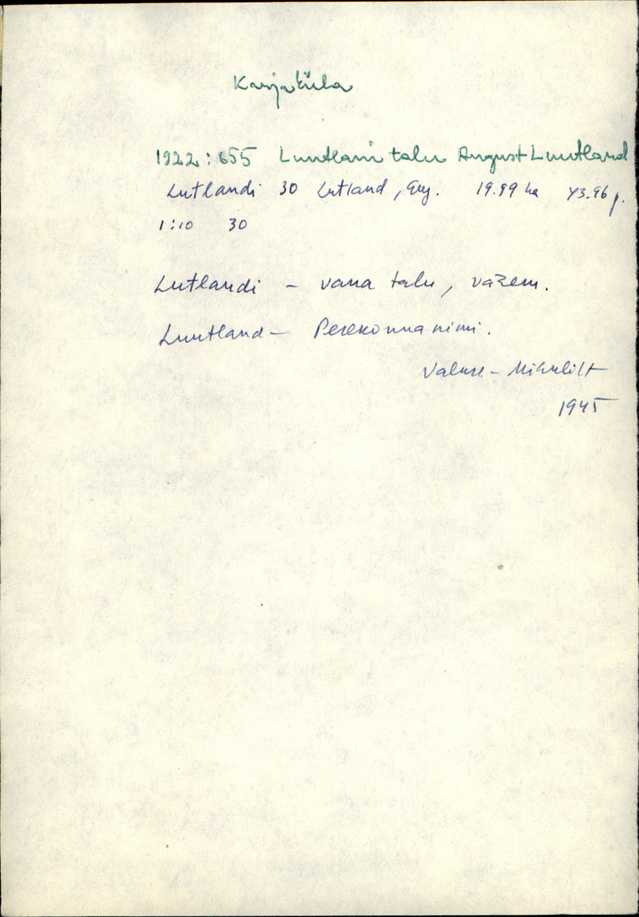 Karja küla
1922: 655 Luutlani talu August Luutland
Lutlandi 30 Lutland, 19.99 ha 43.96 p.
1:10 30
Lutlandi – vana talu, väzem.
Luutland – Perekonnanimi.
Valuse – Mihklilt
1945